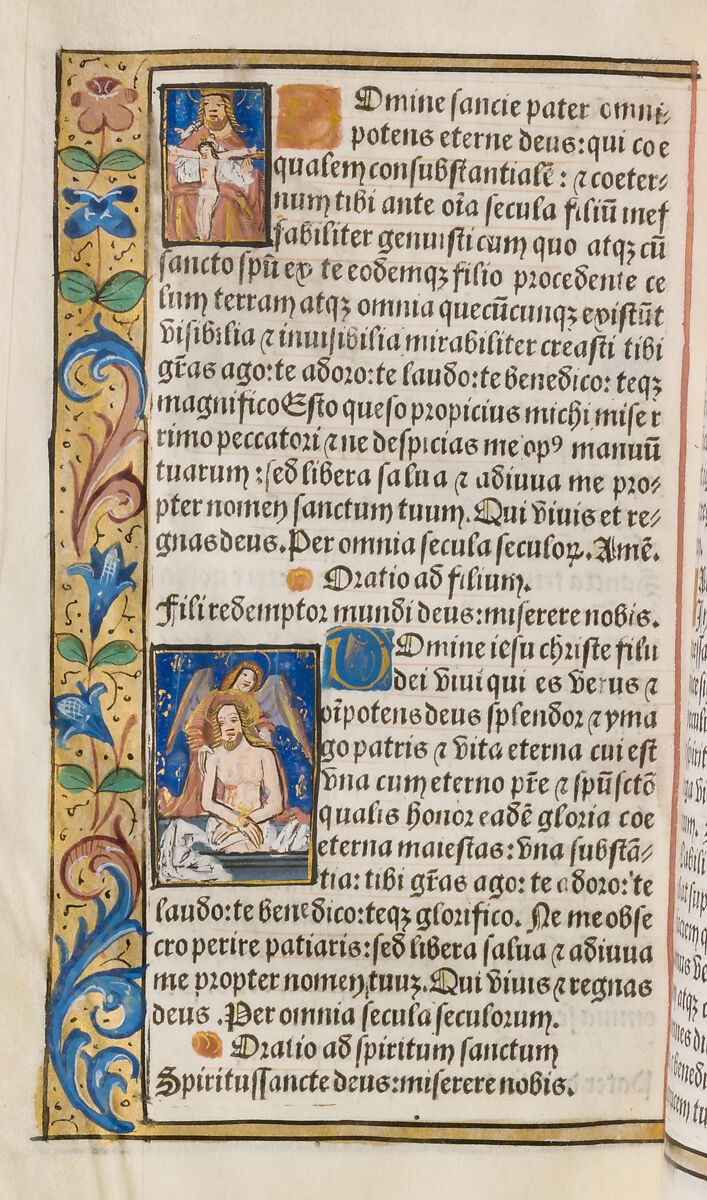 DOmine sancte pater omni⸗
potens eterne deus: qui coe
qualem consubstantialē: ⁊ coeter⸗
num tibi ante oīa secula filiū inef
fabiliter genuisti cum quo atqꝫ cū
sancto spū ex te eodemqꝫ filio procedente ce
lum terram atqꝫ omnia quecūcunqꝫ existūt
visibilia ⁊ inuisibilia mirabiliter creasti tibi
gr̄as ago: te adoro: te laudo: te benedico: teqꝫ
magnifico Esto queso propicius michi miser
rimo peccatori ⁊ ne despicias me opꝰ manuū
tuarum: sed libera salua ⁊ adiuua me pro⸗
pter nomen sanctum tuum. Qui viuis et re⸗
gnas deus. Per omnia secula seculoꝝ. Amē.
Oratio ad filium.
Fili redemptor mundi deus: miserere nobis.
DOmine iesu christe filii
dei viui qui es verus ⁊
oīpotens deus splendor ⁊ yma
go patris ⁊ vita eterna cui est
vna cum eterno pr̄e ⁊ spū sctō
qualis honor eadē gloria coe
eterna maiestas: vna substā⸗
tia: tibi gr̄as ago: te adoro: te
laudo: te benedico: teqꝫ glorifico. Ne me obse
cro perire patiaris: sed libera salua ⁊ adiuua
me propter nomen tuuꝫ. Qui viuis ⁊ regnas
deus. Per omnia secula seculorum.
Oratio ad spiritum sanctum
Spiritus sancte deus: miserere nobis.